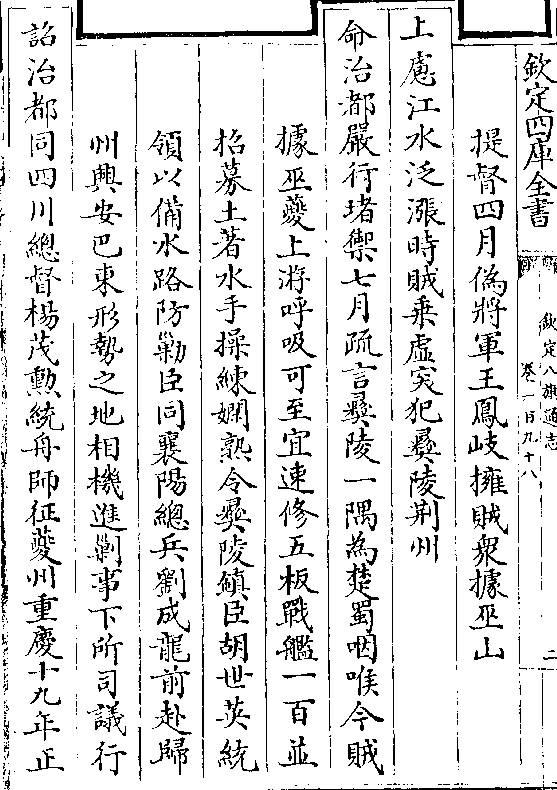 欽定四庫全書
欽定八旗通志
卷一百九十八
二
提督四月偽將軍王鳳岐擁賊衆據巫山
上慮江水泛漲時賊乗虛突犯彛陵荆州
命治都嚴行堵禦七月疏言彛陵一隅為楚蜀咽喉今賊
據巫夔上游呼吸可至宜速修五板戰艦一百並
招募土著水手操練嫻熟令彛陵鎮臣胡世英統
領以備水路防勦臣同襄陽總兵劉成龍前赴歸
州興安巴東形勢之地相機進勦事下所司議行
詔治都同四川總督楊茂勲統舟師征夔州重慶十九年正